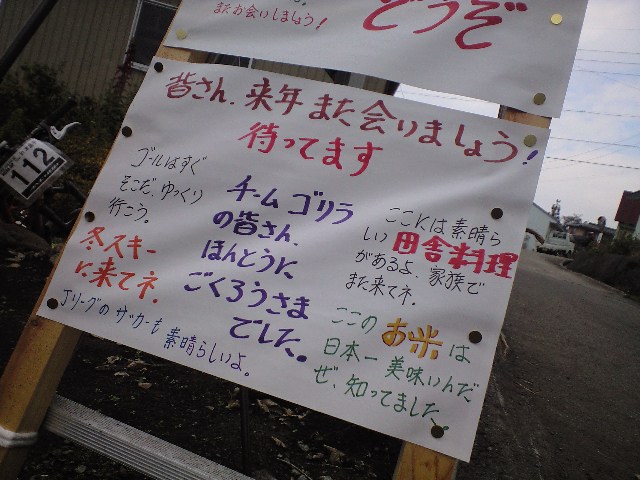 またお会いしましょう!
どうぞ
皆さん、来年また会いましょう!
待ってます
ゴールはすぐ
そこだ、ゆっくり
行こう。
冬スキー
に来てネ.
Jリーグのサッカーも
素晴らしいよ。
チームゴリラ
の皆さん、
ほんとうに
ごくろうさま
でした。
ここには素晴ら
しい田舎料理
があるよ、家族で
また来てネ.
ここのお米は
日本一美味いんだ
ぜ、知ってました。
112